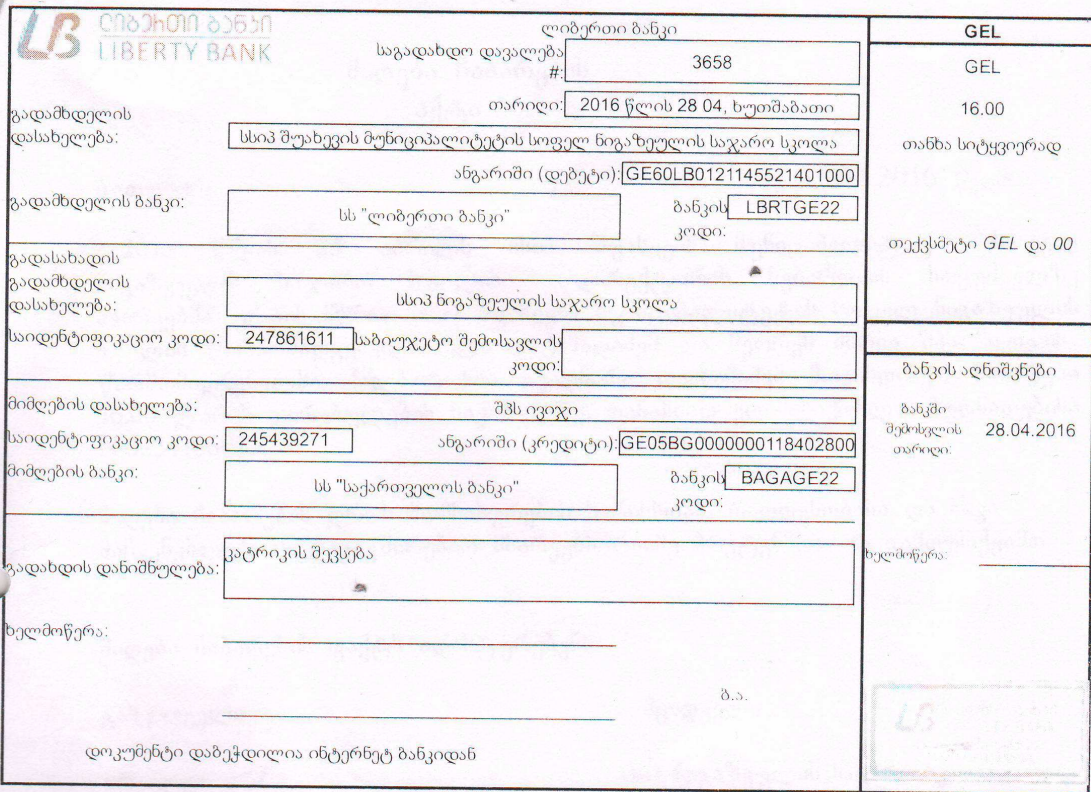 ლიბერთი ბანკი
LIBERTY BANK
ლიბერთი ბანკი
საგადახდო დავალება #: 3658
თარიღი: 2016 წლის 28 04, ხუთშაბათი
გადამხდელის დასახელება: სსიპ შუახევის მუნიციპალიტეტის სოფელ ნიგაზეულის საჯარო სკოლა
ანგარიში (დებეტი): GE60LB0121145521401000
გადამხდელის ბანკი: სს "ლიბერთი ბანკი" ბანკის კოდი: LBRTGE22
გადასახადის გადამხდელის დასახელება: სსიპ ნიგაზეულის საჯარო სკოლა
საიდენტიფიკაციო კოდი: 247861611 საბიუჯეტო შემოსავლის კოდი:
მიმღების დასახელება: შპს ივიჯი
საიდენტიფიკაციო კოდი: 245439271 ანგარიში (კრედიტი): GE05BG0000000118402800
მიმღების ბანკი: სს "საქართველოს ბანკი" ბანკის კოდი: BAGAGE22
გადახდის დანიშნულება: კატრიკის შევსება
ხელმოწერა:
ბ.ა.
დოკუმენტი დაბეჭდილია ინტერნეტ ბანკიდან
GEL
GEL
16.00
თანხა სიტყვიერად
თექვსმეტი GEL და 00
ბანკის აღნიშვნები
ბანკში შემოსვლის თარიღი: 28.04.2016
ხელმოწერა:
LB